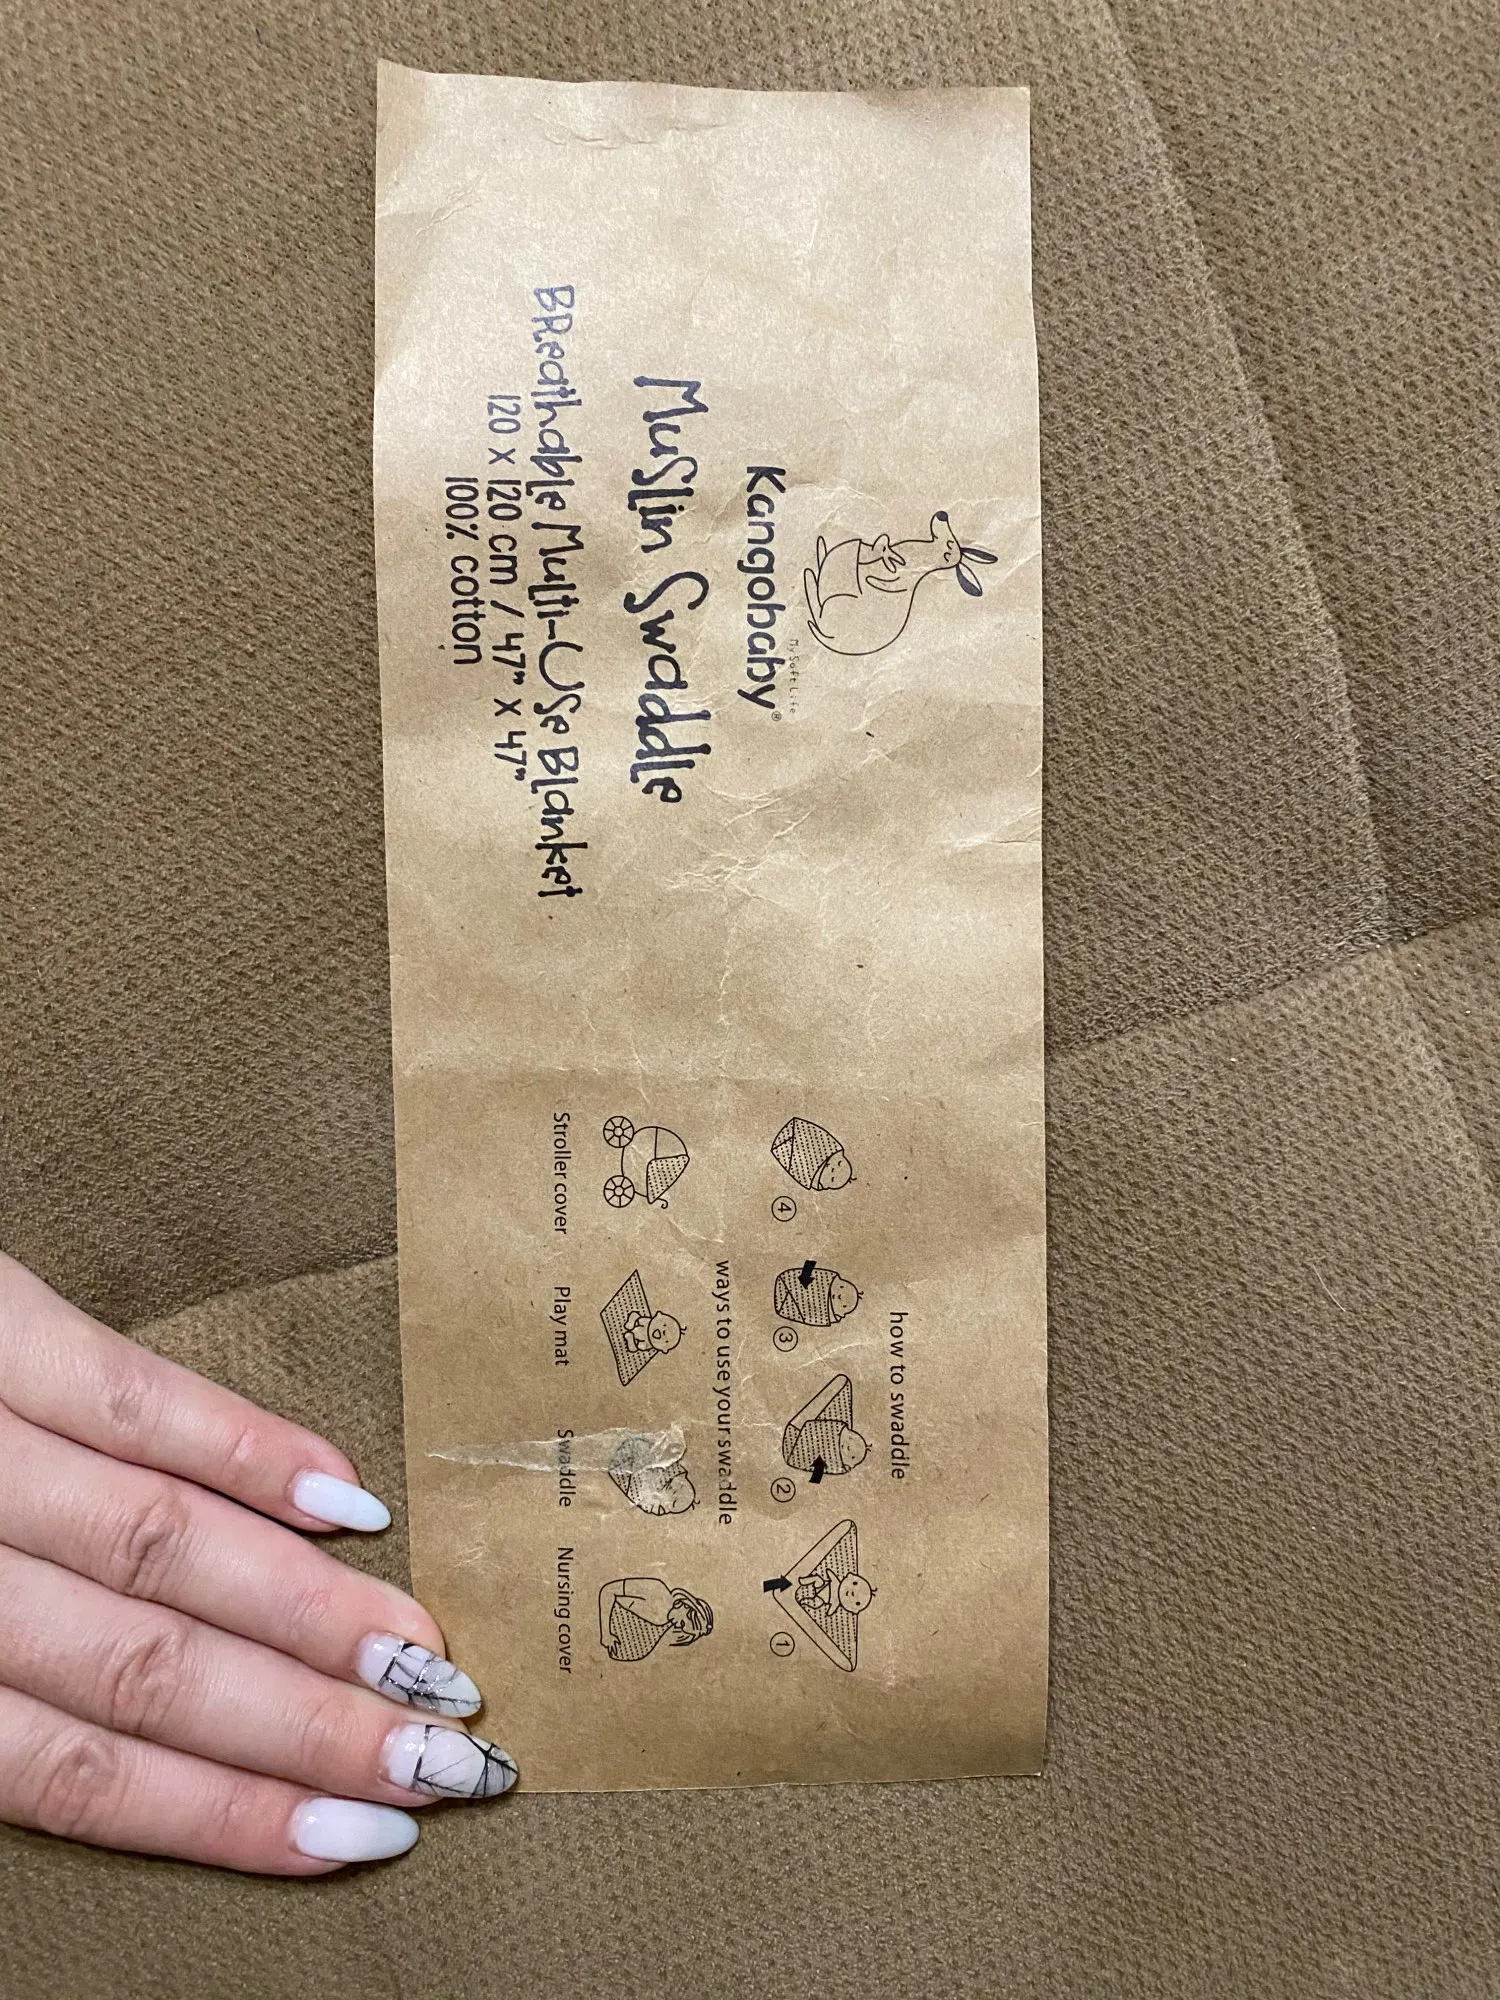 My Soft Life
Kangobaby®
Muslin Swaddle
Breathable Multi-Use Blanket
120 x 120 cm / 47" x 47"
100% cotton
how to swaddle
④ ③ ② ①
ways to use your swaddle
Stroller cover Play mat Swaddle Nursing cover